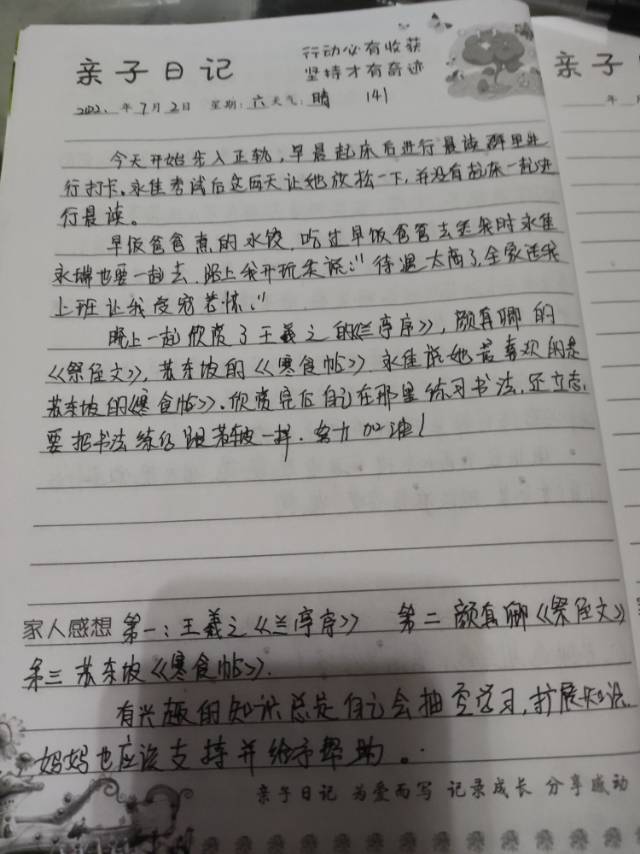 行动必有收获
亲子日记 坚持才有奇迹
2022.年7月2日 星期:六 天气:晴 141
今天开始步入正轨,早晨起床后进行晨读群里进
行打卡。永佳考试后这两天让她放松一下,并没有起床一起进
行晨读。
早饭爸爸煮的水饺,吃过早饭爸爸去送我时永佳
永瑞也要一起去,路上我开玩笑说:“待遇太高了,全家送我
上班让我受宠若惊。”
晚上一起欣赏了王羲之的《兰亭序》,颜真卿的
《祭侄文》,苏东坡的《寒食帖》永佳说她最喜欢的是
苏东坡的《寒食帖》。欣赏完后自己在那里练习书法,还立志
要把书法练得跟苏轼一样.努力加油!
家人感想 第一:王羲之《兰亭序》 第二 颜真卿《祭侄文》
第三 苏东坡《寒食帖》.
有兴趣的知识总是自己会抽空学习,扩展知识.
妈妈也应该支持并给予帮助。
亲子日记 为爱而写 记录成长 分享感动
亲子
年